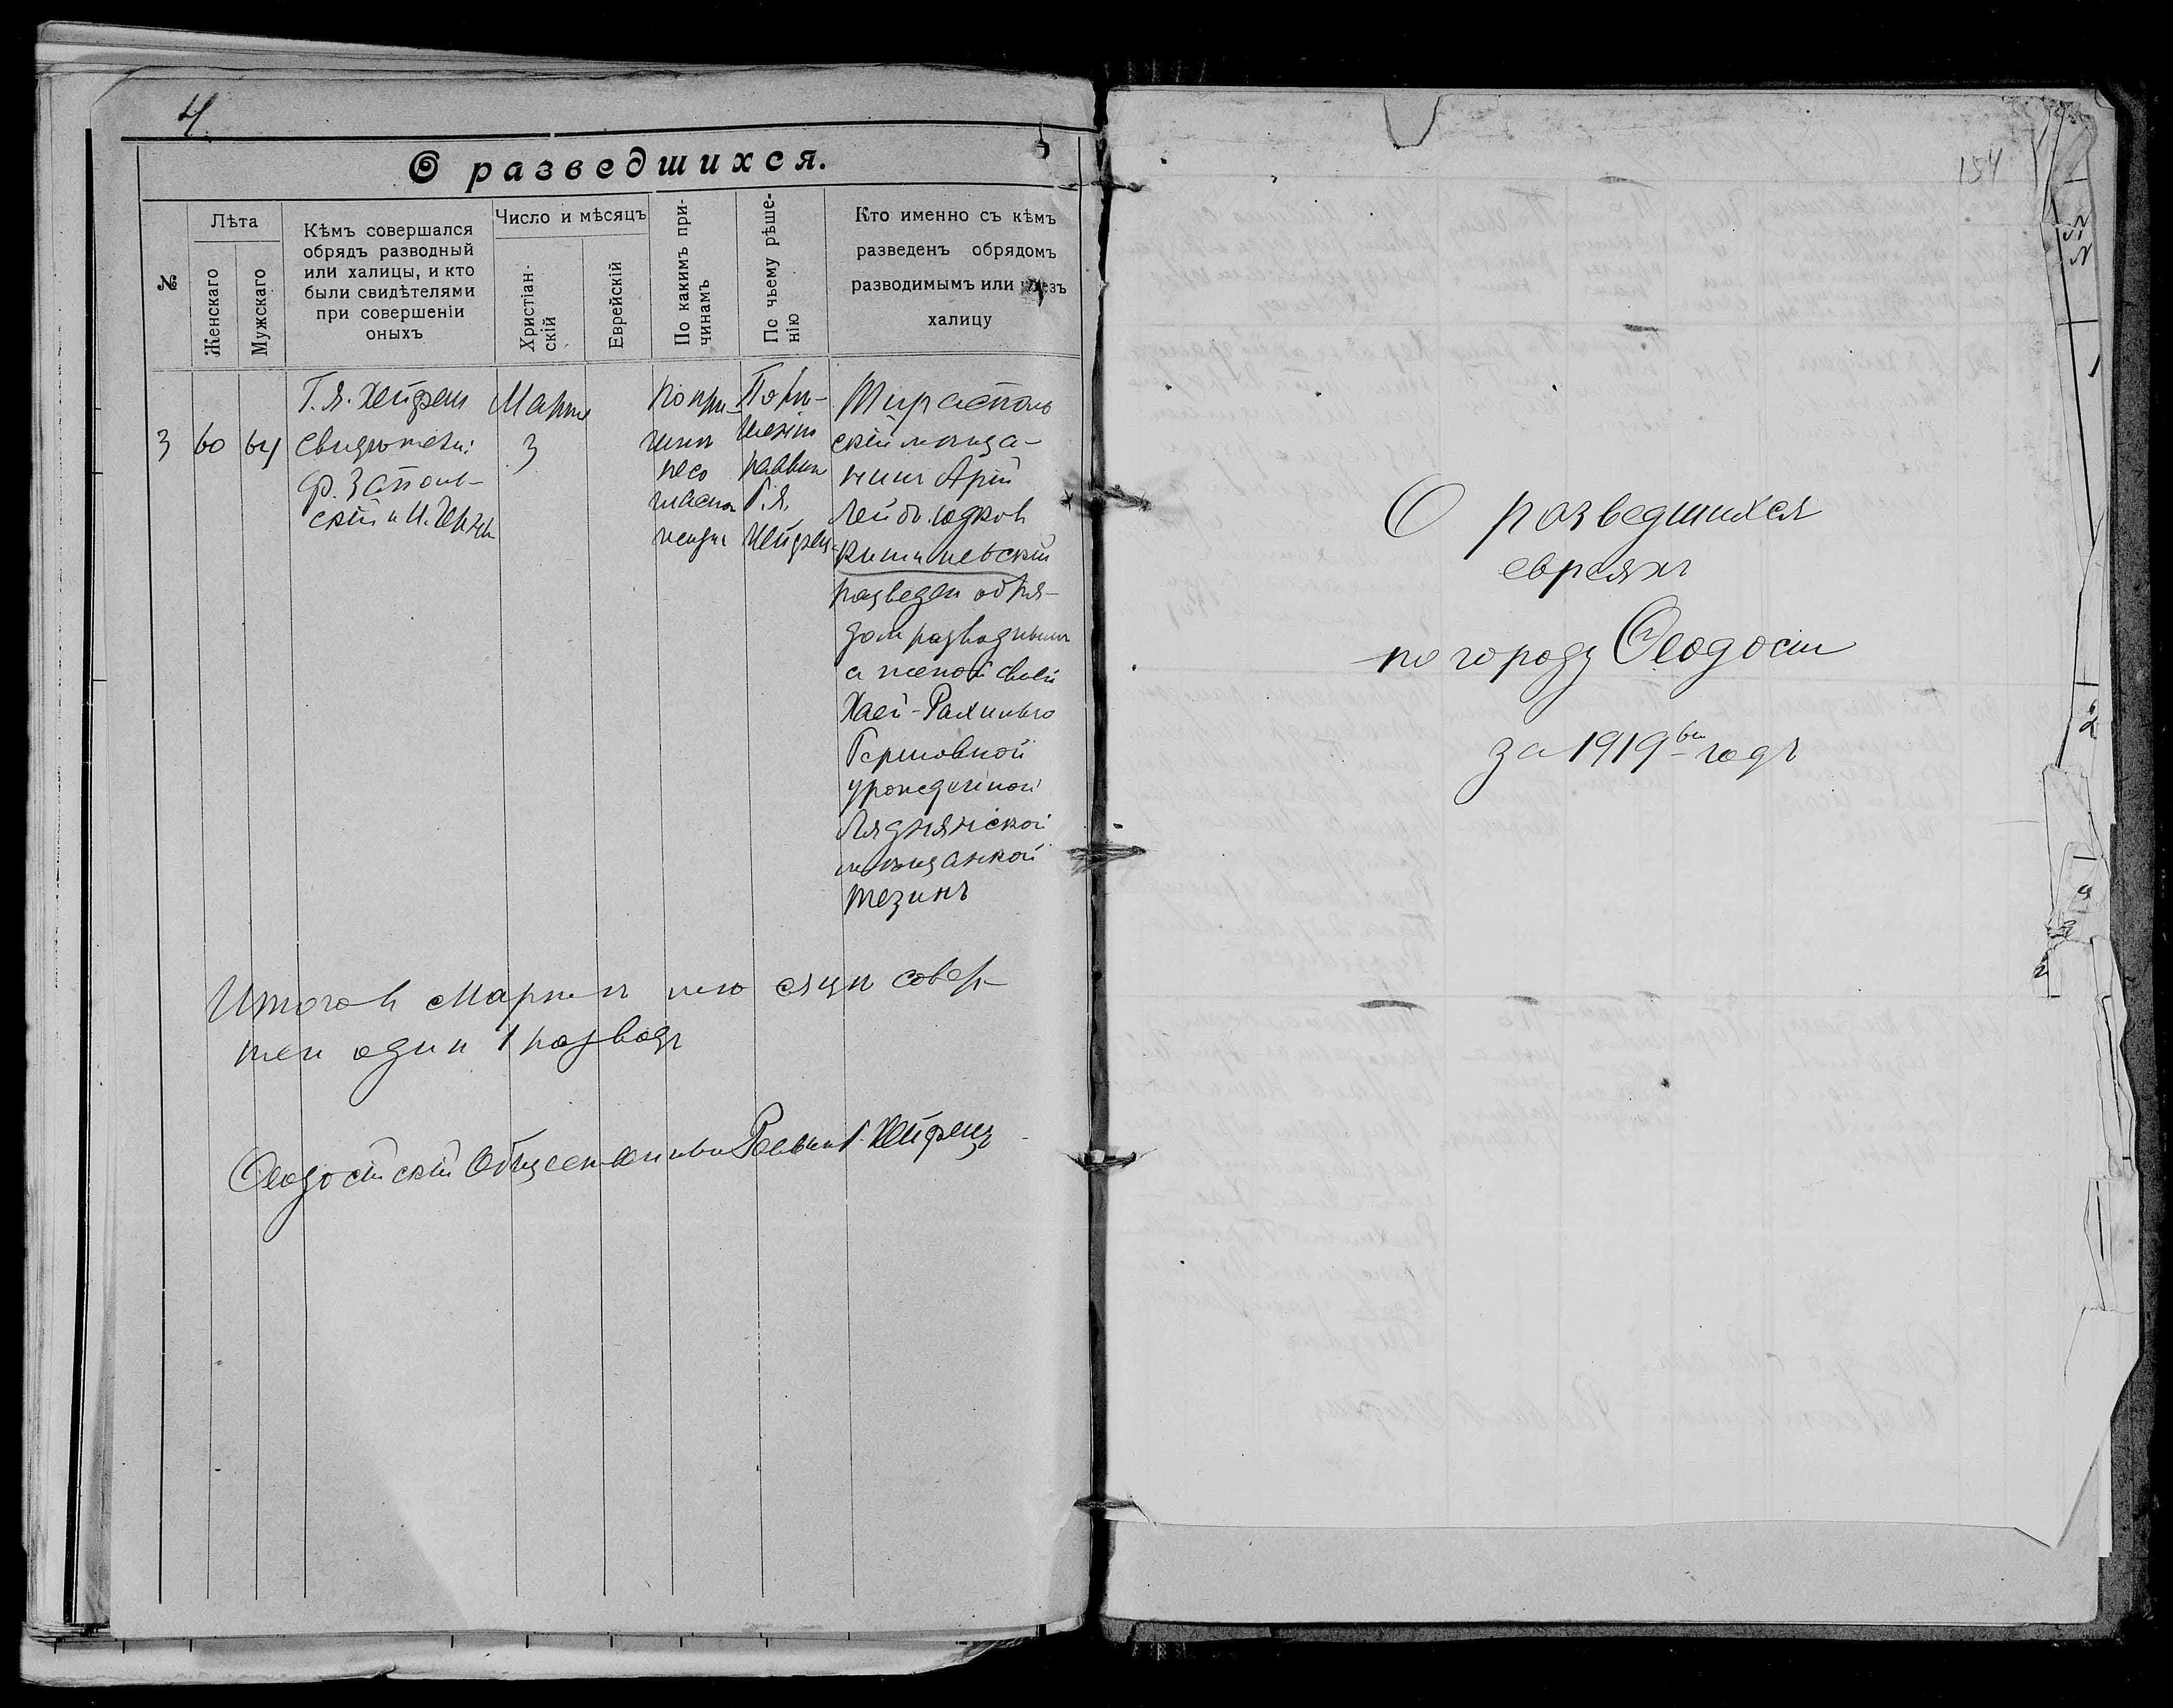 4
О разведшихся.
№
Лѣта
Женскаго
Мужскаго
Кѣмъ совершался
обрядъ разводный
или халицы, и кто
были свидѣтелями
при совершеніи
оныхъ
Число и мѣсяцъ
Христіан-
скій
Еврейскій
По какимъ при-
чинамъ
По чьему рѣше-
нію
Кто именно съ кѣмъ
разведенъ обрядомъ
разводимымъ или чрезъ
халицу
3
60
64
Г. Я. Хейфец
свидѣтели:
Ф. Заполь-
скій и И.
Марта
3
По при-
чинѣ
несо
гласной
жизни
По рѣ-
шенію
раввина
Г. Я.
Хейфец
Тирасполь
скій мѣща-
нинъ Арій
Лейб. Юдков
Кишиневскій
разведен обря-
дом разводным
с женой своей
Хаей-Рахилью
Гершовной
урожденной
Ляднянской
мѣщанкой
Тезинъ
Итого в Мартѣ мѣсяцѣ совер-
шен один 1 разводъ
Ѳеодосійскій Общественный Раввин Г. Хейфецъ
154
О разведшихся
евреяхъ
по городу Ѳеодосіи
за 1919ый годъ